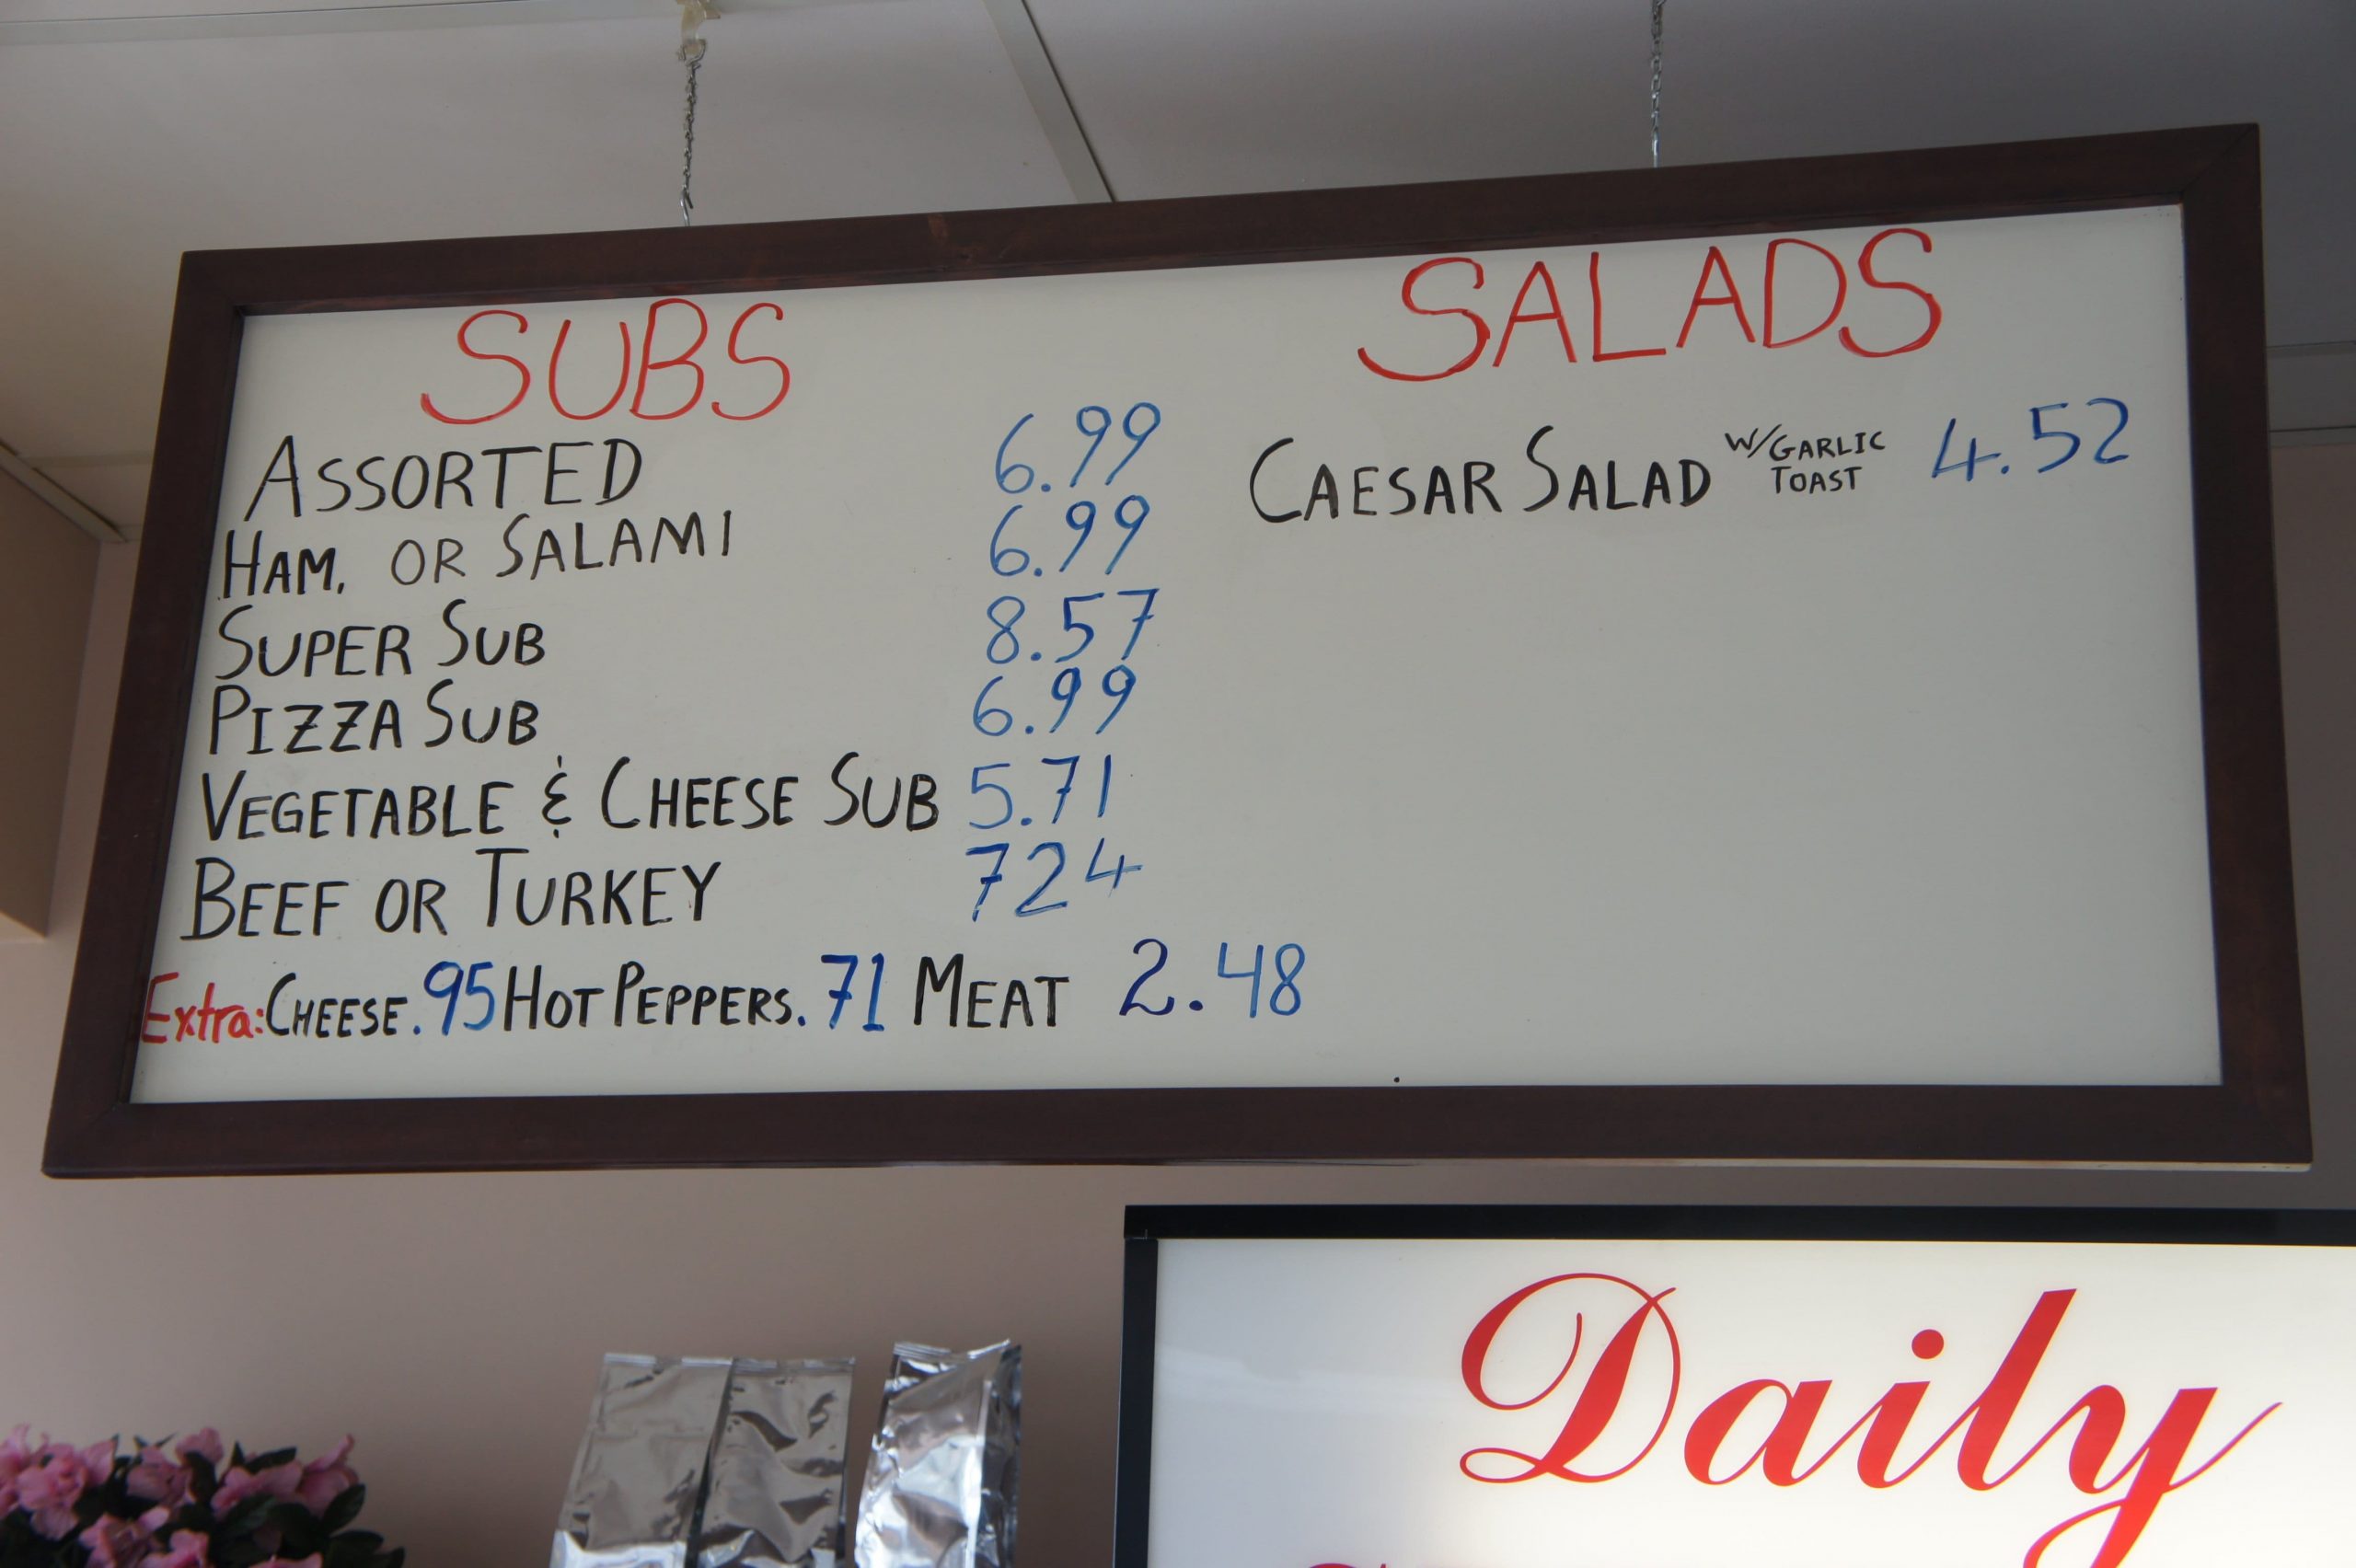 SUBS
ASSORTED 6.99
HAM, OR SALAMI 6.99
SUPER SUB 8.57
PIZZA SUB 6.99
VEGETABLE & CHEESE SUB 5.71
BEEF OR TURKEY 724
Extra: CHEESE .95 HOT PEPPERS .71 MEAT 2.48
SALADS
CAESAR SALAD W/GARLIC TOAST 4.52
Daily